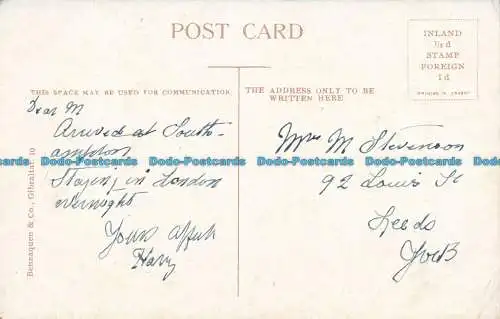 POST CARD
INLAND
½d
STAMP
FOREIGN
1d
THIS SPACE MAY BE USED FOR COMMUNICATION.
THE ADDRESS ONLY TO BE
WRITTEN HERE
Dear M
Arrived at South-
ampton
Staying in London
overnight
Yours affect
Harry
Mrs M Stevenson
92 Louis St
Leeds
Benzaquen & Co., Gibraltar. 10
Dodo-Postcards Dodo-Postcards Dodo-Postcards Dodo-Postcards Dodo-Postcards